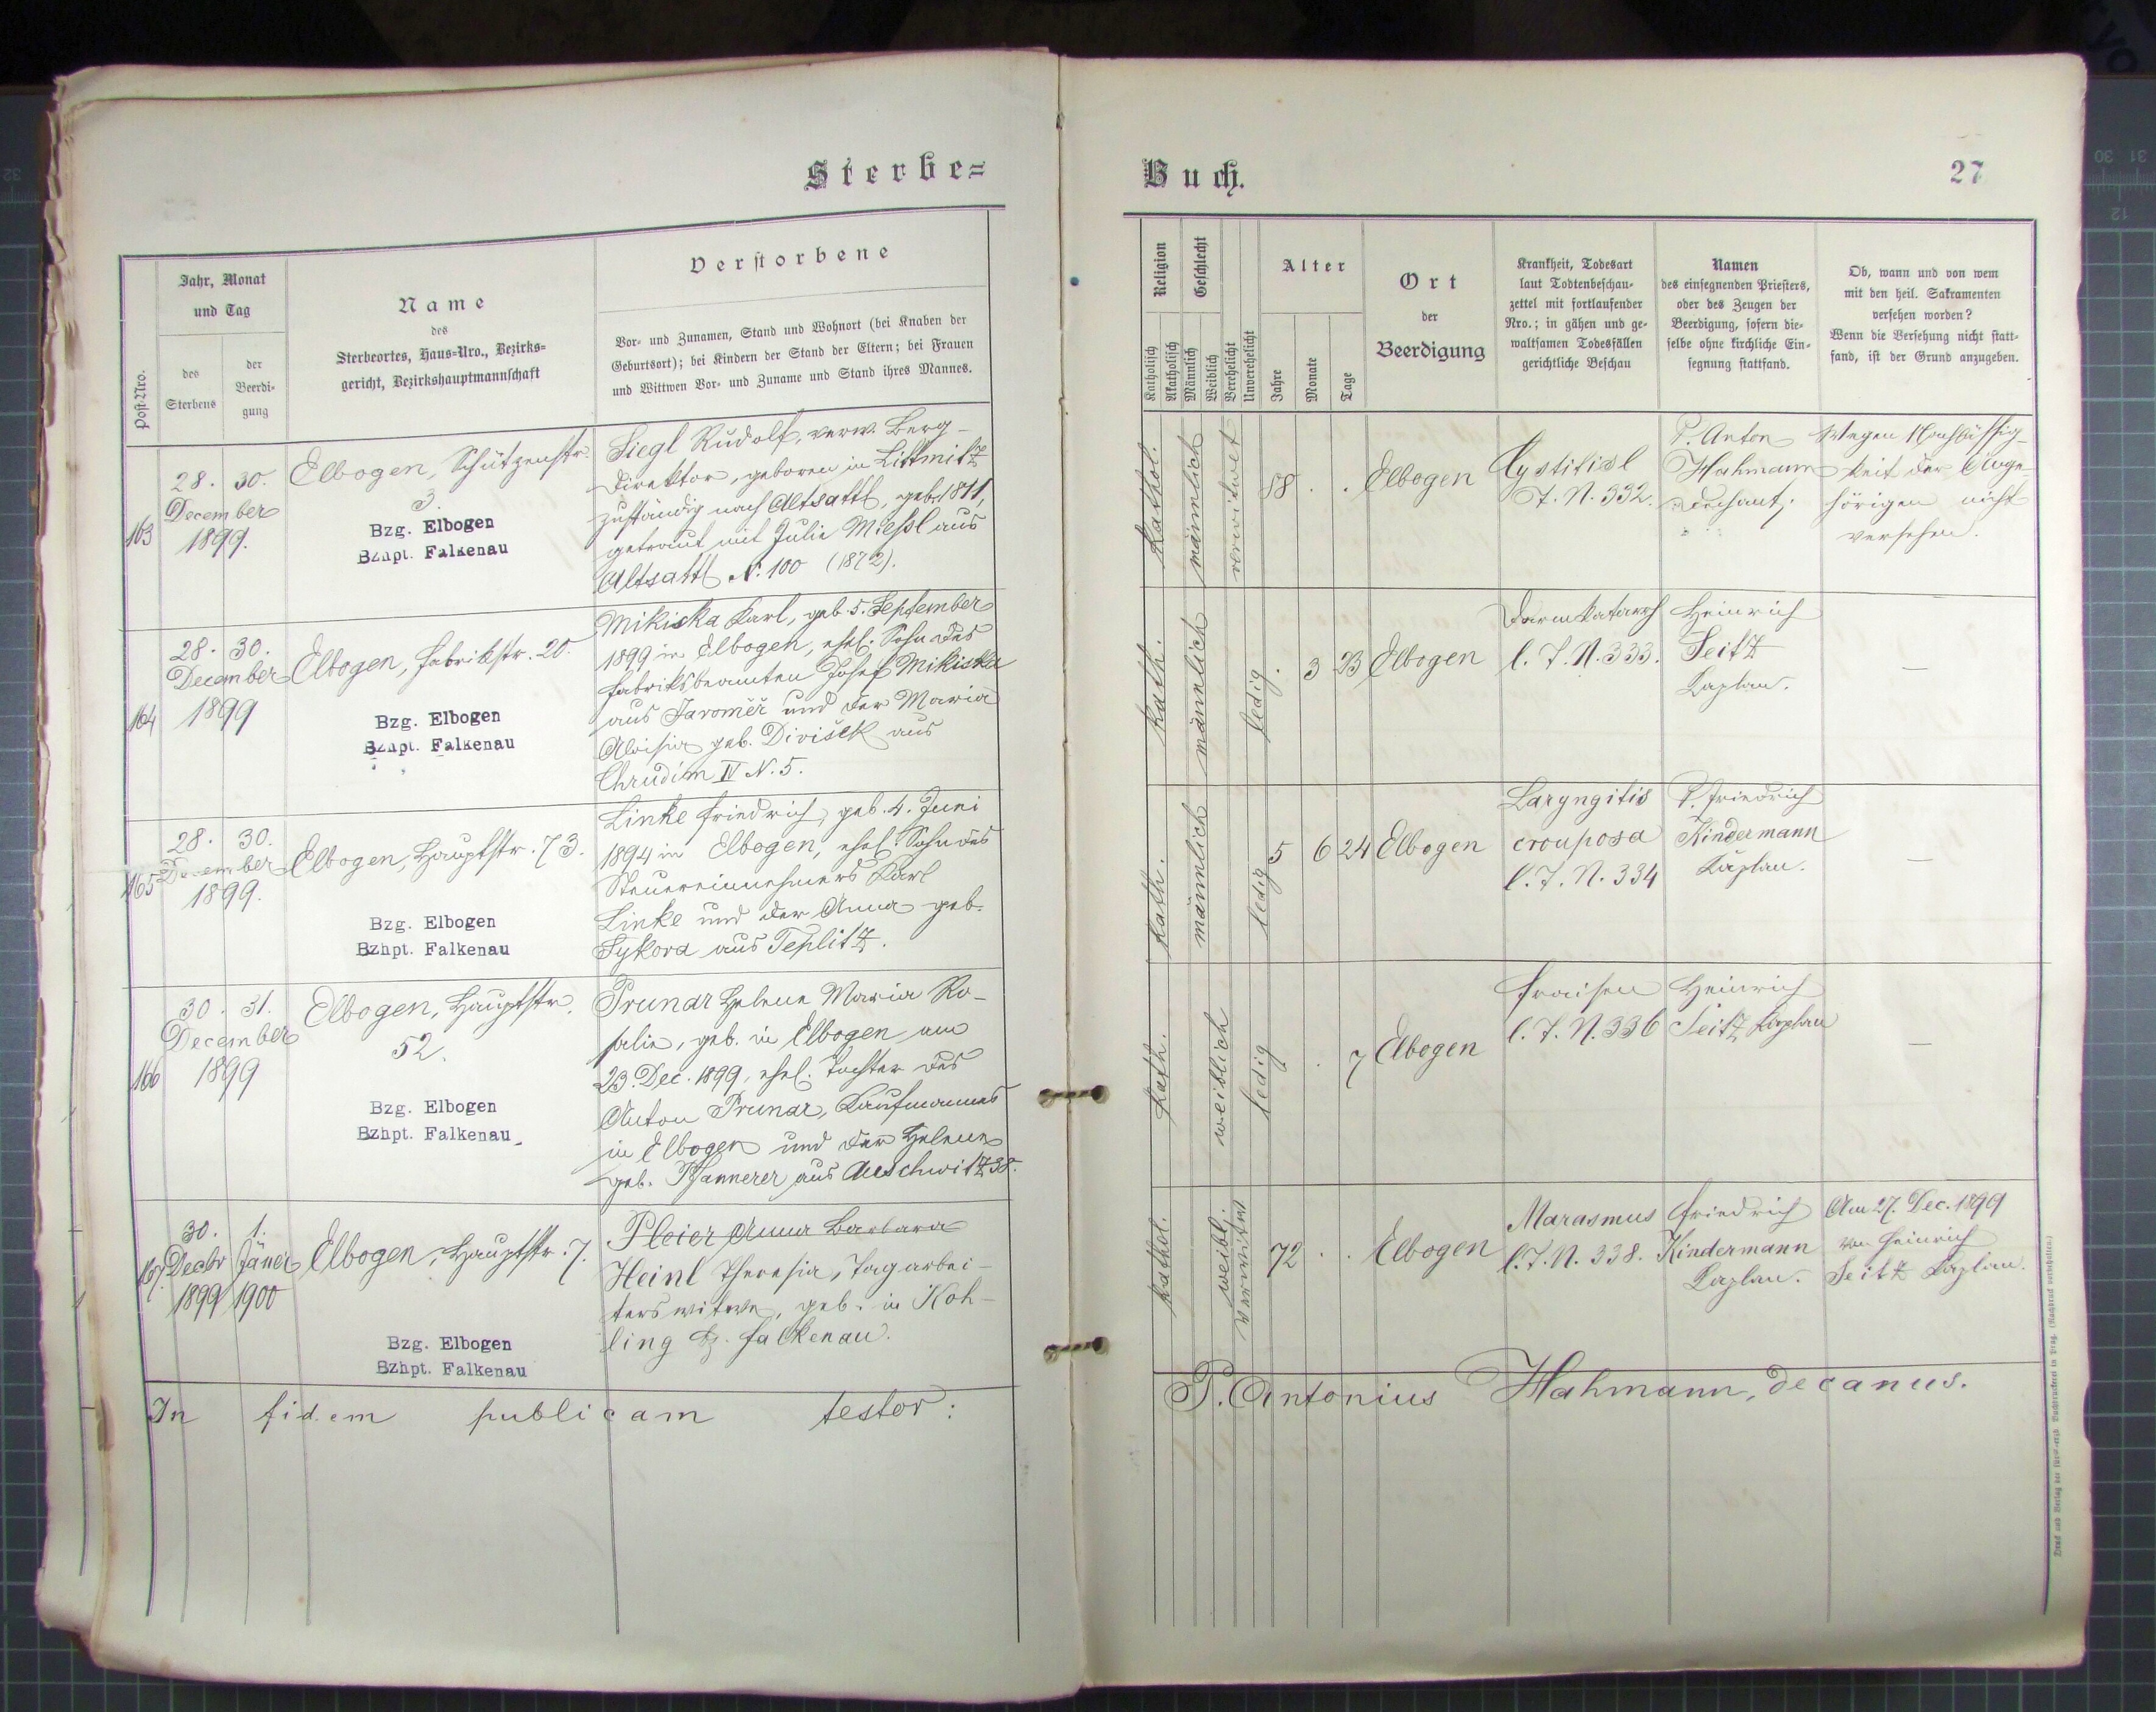 Sterbe=
Post-Nro.
Jahr, Monat
und Tag
des
Sterbens
der
Beerdi-
gung
Name
des
Sterbeortes, Haus-Nro., Bezirks-
gericht, Bezirkshauptmannschaft
Verstorbene
Vor- und Zunamen, Stand und Wohnort (bei Knaben der
Geburtsort); bei Kindern der Stand der Eltern; bei Frauen
und Wittwen Vor- und Zuname und Stand ihres Mannes.
163
28. 30.
December
1899.
Elbogen, Schützenstr.
3.
Bzg. Elbogen
Bzhpt. Falkenau
Siegl Rudolf, verw. Berg-
direktor, geboren in Littmitz
zuständig nach Altsattl, geb. 1811,
getraut mit Julie Mießl aus
Altsattl N. 100 (1872).
164
28. 30.
December
1899
Elbogen, Fabrikstr. 20.
Bzg. Elbogen
Bzhpt. Falkenau
Mikiska Karl, geb. 5. September
1899 in Elbogen, ehel. Sohn des
Fabriksbeamten Josef Mikiska
aus Jaroměř und der Maria
Aloisia geb. Divišek aus
Chrudim IV N. 5.
165
28. 30.
December
1899.
Elbogen, Hauptstr. 73.
Bzg. Elbogen
Bzhpt. Falkenau
Linke Friedrich, geb. 4. Juni
1894 in Elbogen, ehel. Sohn des
Steuereinnehmers Karl
Linke und der Anna geb.
Sykora aus Teplitz.
166
30. 31.
December
1899
Elbogen, Hauptstr.
52.
Bzg. Elbogen
Bzhpt. Falkenau
Prunar Helene Maria Ro-
salie, geb. in Elbogen am
23. Dec. 1899, ehel. Tochter des
Anton Prunar, Kaufmannes
in Elbogen und der Helene
geb. Pfannerer aus Aeschwitz 38.
167.
30. 1.
Decbr Jäner
1899 1900
Elbogen, Hauptstr. 7.
Bzg. Elbogen
Bzhpt. Falkenau
Pleier Anna Barbara
Heinl Theresia, Tagarbei-
terswitwe, geb. in Koh-
ling Bz. Falkenau.
In fidem publicam testor:
Buch.
27
Religion
Katholisch
Akatholisch
Geschlecht
Männlich
Weiblich
Verehelicht
Unverehelicht
Alter
Jahre
Monate
Tage
Ort
der
Beerdigung
Krankheit, Todesart
laut Todtenbeschau-
zettel mit fortlaufender
Nro.; in gähen und ge-
waltsamen Todesfällen
gerichtliche Beschau
Namen
des einsegnenden Priesters,
oder des Zeugen der
Beerdigung, sofern die-
selbe ohne kirchliche Ein-
segnung stattfand.
Ob, wann und von wem
mit den heil. Sakramenten
versehen worden?
Wenn die Versehung nicht statt-
fand, ist der Grund anzugeben.
Kathol.
männlich
verwitwet
88 . .
Elbogen
T. N. 332.
P. Anton
Hahmann
Dechant.
Wegen Nachlässig-
keit der Ange-
hörigen nicht
versehen.
Kath.
männlich
ledig
. 3 23
Elbogen
Darmkatarrh
l. T. N. 333.
Heinrich
Seitz
Kaplan.
—
Kath.
männlich
ledig
5 6 24
Elbogen
Laryngitis
crouposa
l. T. N. 334
P. Friedrich
Kindermann
Kaplan.
—
Kath.
weiblich
ledig
. 7
Elbogen
Fraisen
l. T. N. 336
Heinrich
Seitz Kaplan
—
Kathol.
weibl.
verwitwt
72 . .
Elbogen
Marasmus
l. T. N. 338.
Friedrich
Kindermann
Kaplan.
Am 27. Dec. 1899
von Heinrich
Seitz Kaplan.
P. Antonius Hahmann, decanus.
Druck und Verlag der fürst-erzb. Buchdruckerei in Prag. (Nachdruck vorbehalten.)